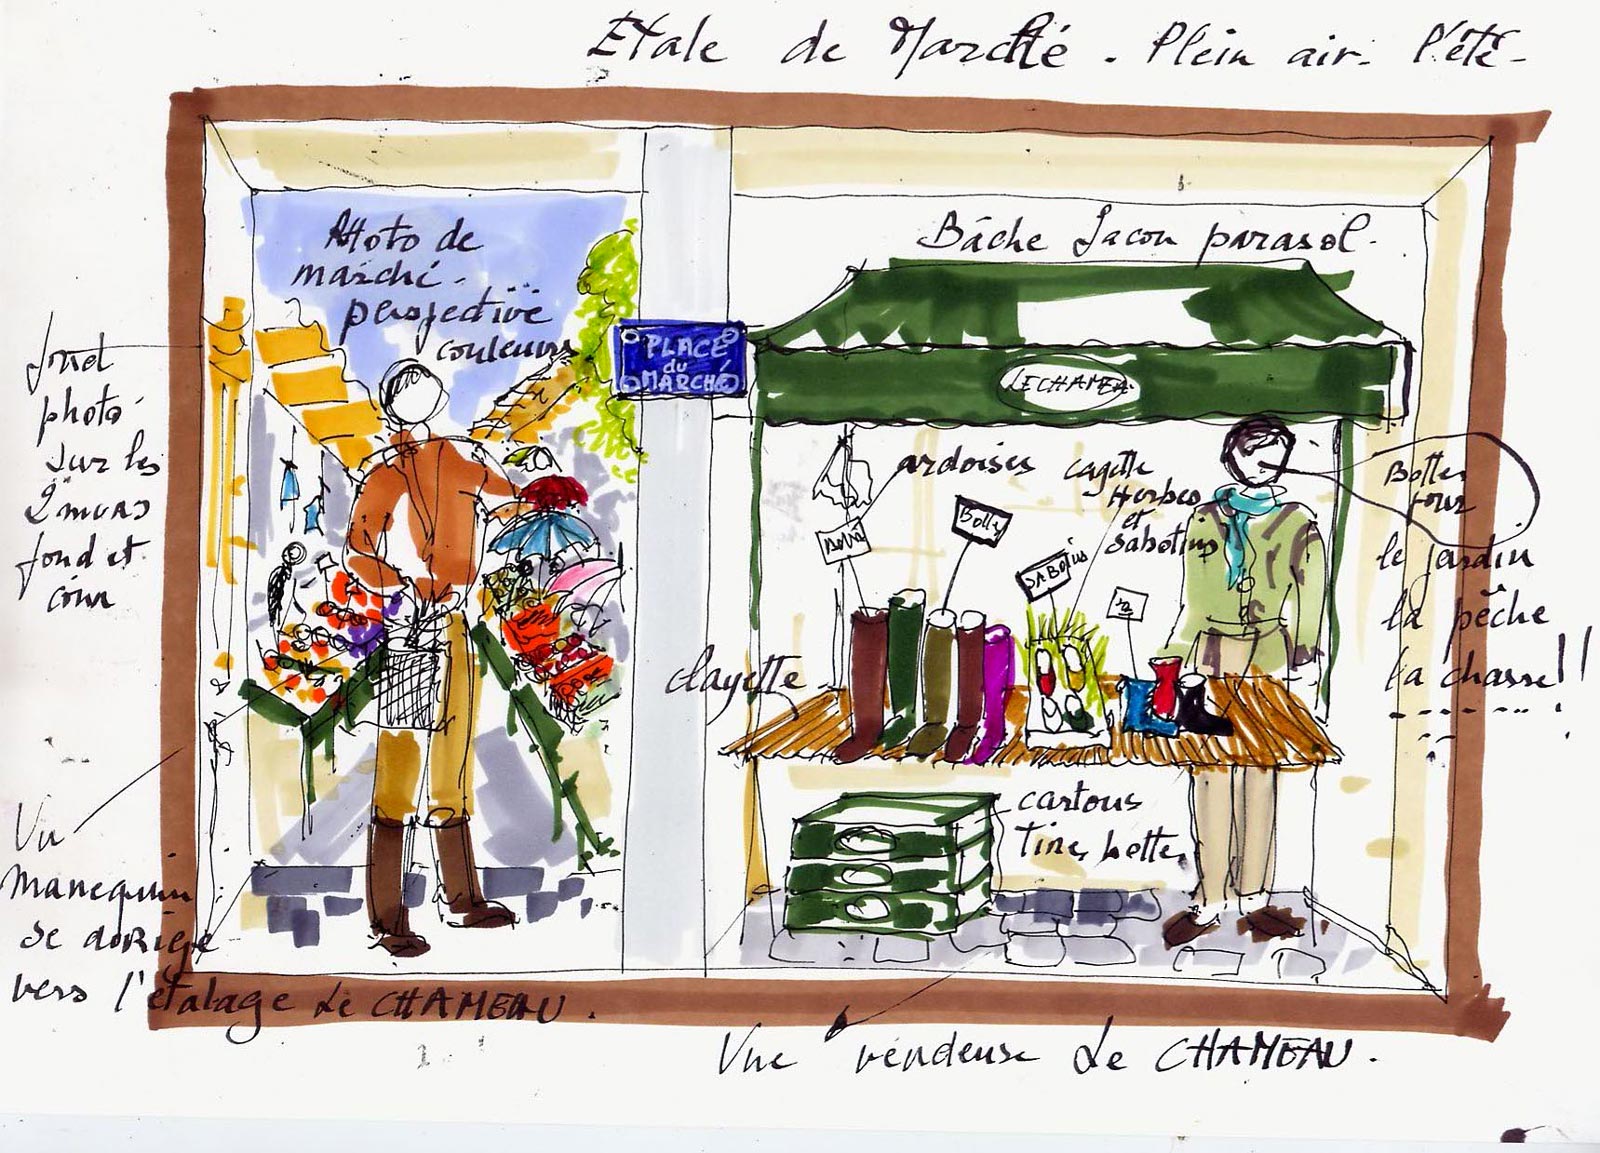 Etale de Marché. Plein air. l'été.
Photo de
marché.
perspective
couleurs
Bâche façon parasol.
PLACE
du
MARCHÉ
LE CHAMEA
fond
photo
sur les
2 murs
fond et
ardoises
cagette
Herbes
et
Sabotins
Bottes
pour
le jardin
la pêche
la chasse!!
Botty
SABOTINS
clayette
cartons
bottes
Un
manequin
se dirige
vers l'étalage Le CHAMEAU.
Une vendeuse Le CHAMEAU.